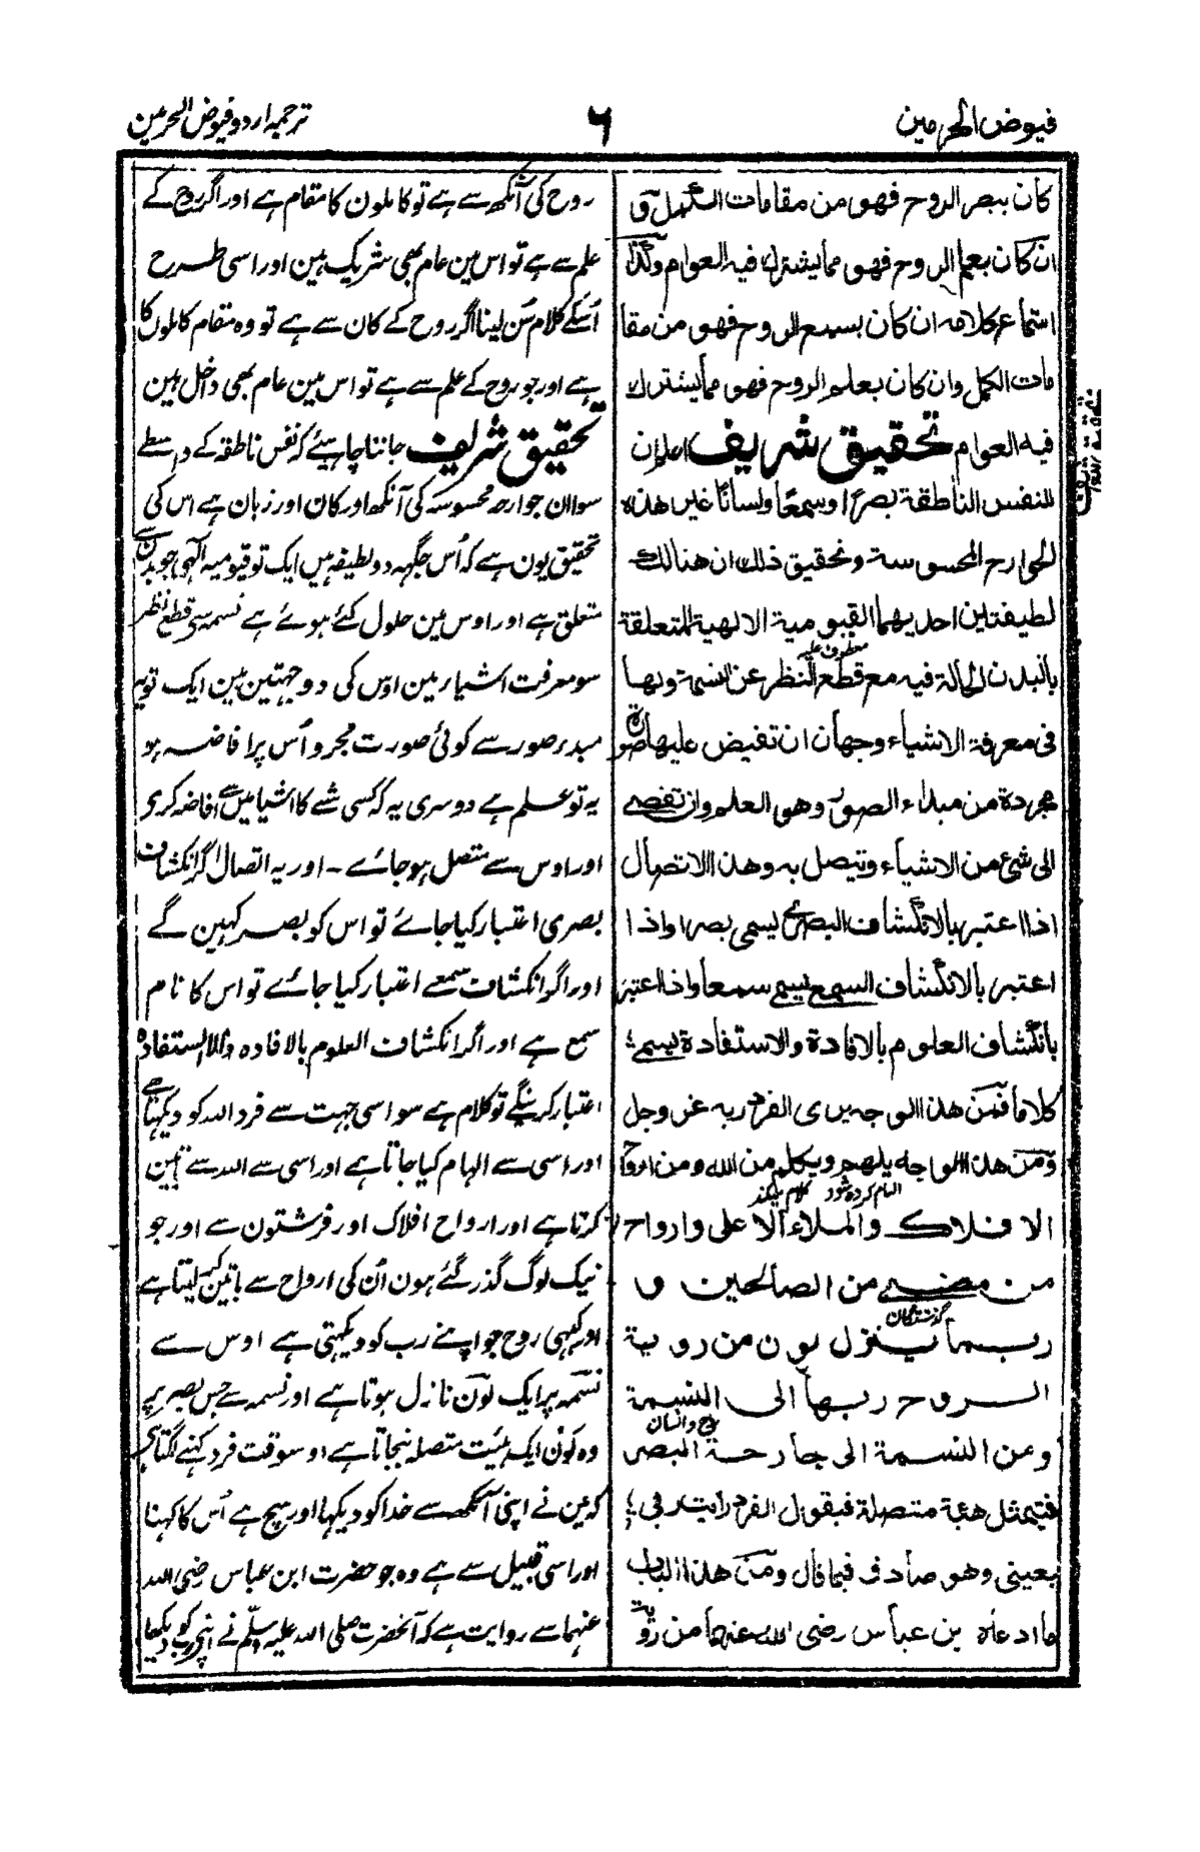 فیوض الحرمین
۶
ترجمہ اردو فیوض الحرمین
كان ببصر الروح فهو من مقامات الكمل و
ان كان بعلم الروح فهو مما يشترك فيه العوام وكذا
استماع كلامه ان كان بسمع الروح فهو من مقا
مات الكمل وان كان بعلم الروح فهو مما يشترك
فيه العوام تحقيق شريف اعلم ان
للنفس الناطقة بصرًا وسمعًا ولسانًا غير هذه
الجوارح المحسوسة وتحقيق ذلك ان هنالك
لطيفتين احديهما القيومية الالهية المتعلقة
معطوف علیہ
بالبدن الحالة فيه مع قطع النظر عن النسمة ولها
فى معرفة الاشياء وجهان ان تفيض عليها صورة
مجردة من مبداء الصور وهو العلم وان تفضى
الى شئ من الاشياء وتتصل به وهذا الاتصال
اذا اعتبر بالانكشاف البصرى يسمى بصرا واذا
اعتبر بالانكشاف السمعى يسمى سمعا واذا اعتبر
بانكشاف العلوم بالافادة والاستفادة يسمى
كلاما فمن هذا الوجه يرى الفرد ربه عز وجل
ومن هذا الوجه يلهم ويكلم من الله ومن ارواح
الہام کردہ شود کلام میکند
الافلاك والملاء الاعلى وارواح
من مضى من الصالحين و
گذشتگان
ربما ينزل لون من روية
الروح ربها الى النسمة
ومن النسمة الى جارحة البصر
فيتمثل هيئة متصلة فيقول الفرد رايت ربى
بعينى وهو صادق فيما قال ومن هذا الباب
ما ادعاه بن عباس رضى الله عنهما من روية
روح کی آنکھ سے ہے تو کاملون کا مقام ہے اور اگر روح کے
علم سے ہے تو اس مین عام بھی شریک ہین اور اسی طرح
اُسکے کلام سُن لینا اگر روح کے کان سے ہے تو وہ مقام کاملوں کا
ہے اور جو روح کے علم سے ہے تو اس مین عام بھی داخل ہین
تحقیق شریف جاننا چاہیئے کہ نفس ناطقہ کے واسطے
سوا ان جوارح محسوسہ کی آنکھ اور کان اور زبان ہے اس کی
تحقیق یون ہے کہ اُس جگہہ دو لطیفہ ہیں ایک تو قیومیہ الٰہی جو بدن سے
متعلق ہے اور اوس مین حلول کئے ہوئے ہے نسمہ سے قطع نظر
سو معرفت اشیاء مین اوس کی دو جہتین ہین ایک تو یہ
مبدء صور سے کوئی صورت مجرد اُس پر افاضہ ہو
یہ تو علم ہے دوسری یہ کہ کسی شے کا اشیا میں سے افاضہ کرے
اور اوس سے متصل ہو جائے ۔ اور یہ اتصال اگر انکشاف
بصری اعتبار کیا جائے تو اس کو بصر کہین گے
اور اگر انکشاف سمعی اعتبار کیا جائے تو اس کا نام
سمع ہے اور اگر انکشاف العلوم بالافادہ والاستفادہ
اعتبار کرینگے تو کلام ہے سو اسی جہت سے فرد اللہ کو دیکھتا ہے
اور اسی سے الہام کیا جاتا ہے اور اسی سے اللہ سے باتین
کرتا ہے اور ارواح افلاک اور فرشتون سے اور جو
نیک لوگ گذر گئے ہون اُن کی ارواح سے باتین کر لیتا ہے
اور کبھی روح جو اپنے رب کو دیکھتی ہے اوس سے
نسمہ پر ایک لون نازل ہوتا ہے اور نسمہ سے جس بصر پر
وہ لون ایک ہیئت متصلہ بنجاتا ہے اوسوقت فرد کہنے لگتا ہے
کہ مین نے اپنی آنکھ سے خدا کو دیکھا اور سچ ہے اُس کا کہنا
اور اسی قبیل سے ہے وہ جو حضرت ابن عباس رضی اللہ
عنہما سے روایت ہے کہ آنحضرت صلی اللہ علیہ وسلم نے اپنے رب کو دیکھا